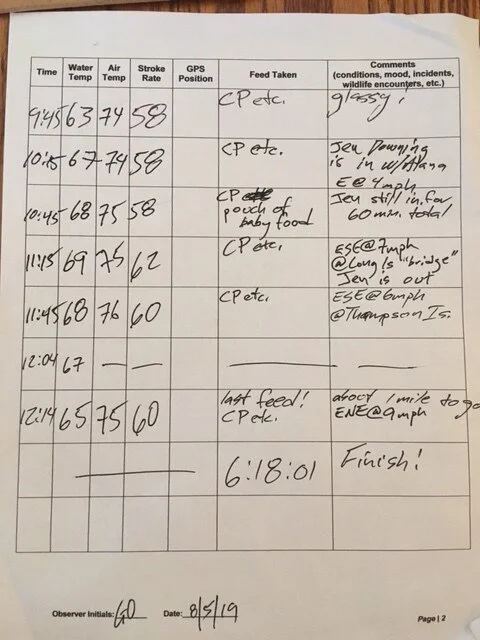 Time Water Temp Air Temp Stroke Rate GPS Position Feed Taken Comments (conditions, mood, incidents, wildlife encounters, etc.)
9:45 63 74 58 CP etc. glassy!
10:15 67 74 58 CP etc. Jen Downing
is in w/Alana
E@4mph
10:45 68 75 58 CP pouch of baby food Jen still in for
60 min. total
11:15 69 75 62 CP etc. ESE@7mph
@Long Is "bridge"
Jen is out
11:45 68 76 60 CP etc. ESE@6mph
@Thompson Is.
12:04 67 — — — —
12:14 65 75 60 last feed! CP etc. about 1 mile to go
ENE@9mph
6:18:01 Finish!
Observer Initials: GO Date: 8/5/19 Page | 2